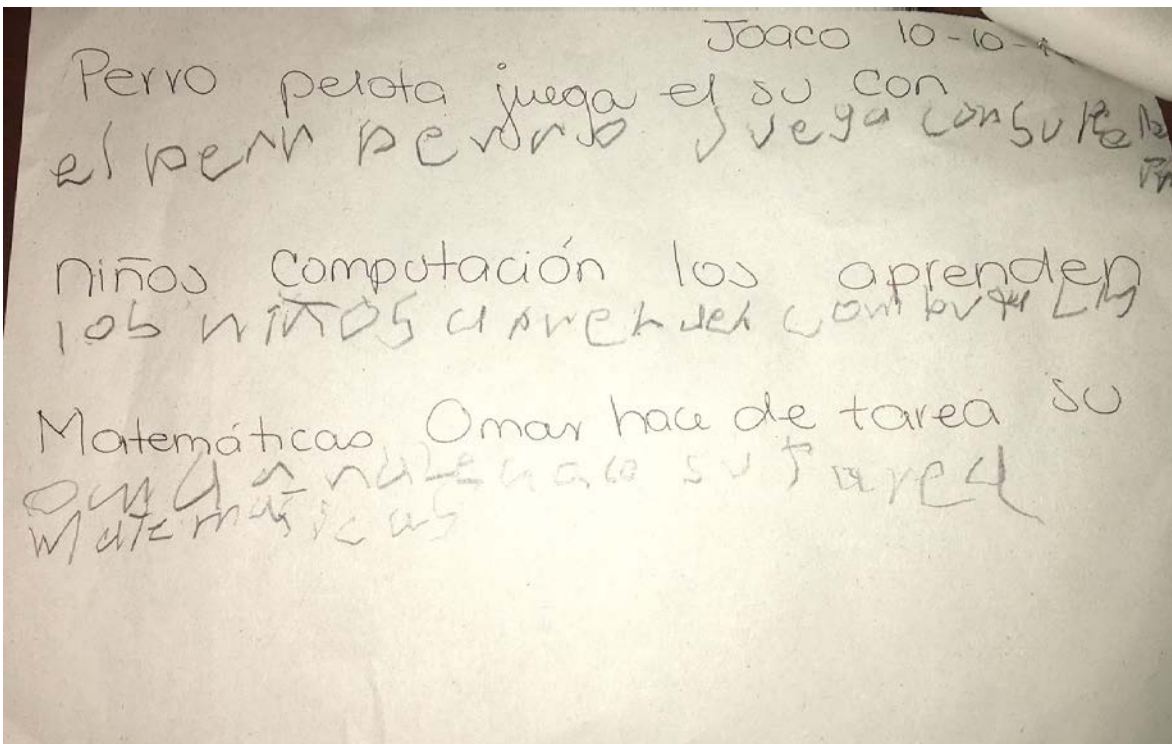 Joaco 10-10-
Perro pelota juega el su con
el perr perrro juega con su
niños computación los aprenden
los niños aprenden
Matemáticas Omar hace de tarea su
su tarea
Matemáticas